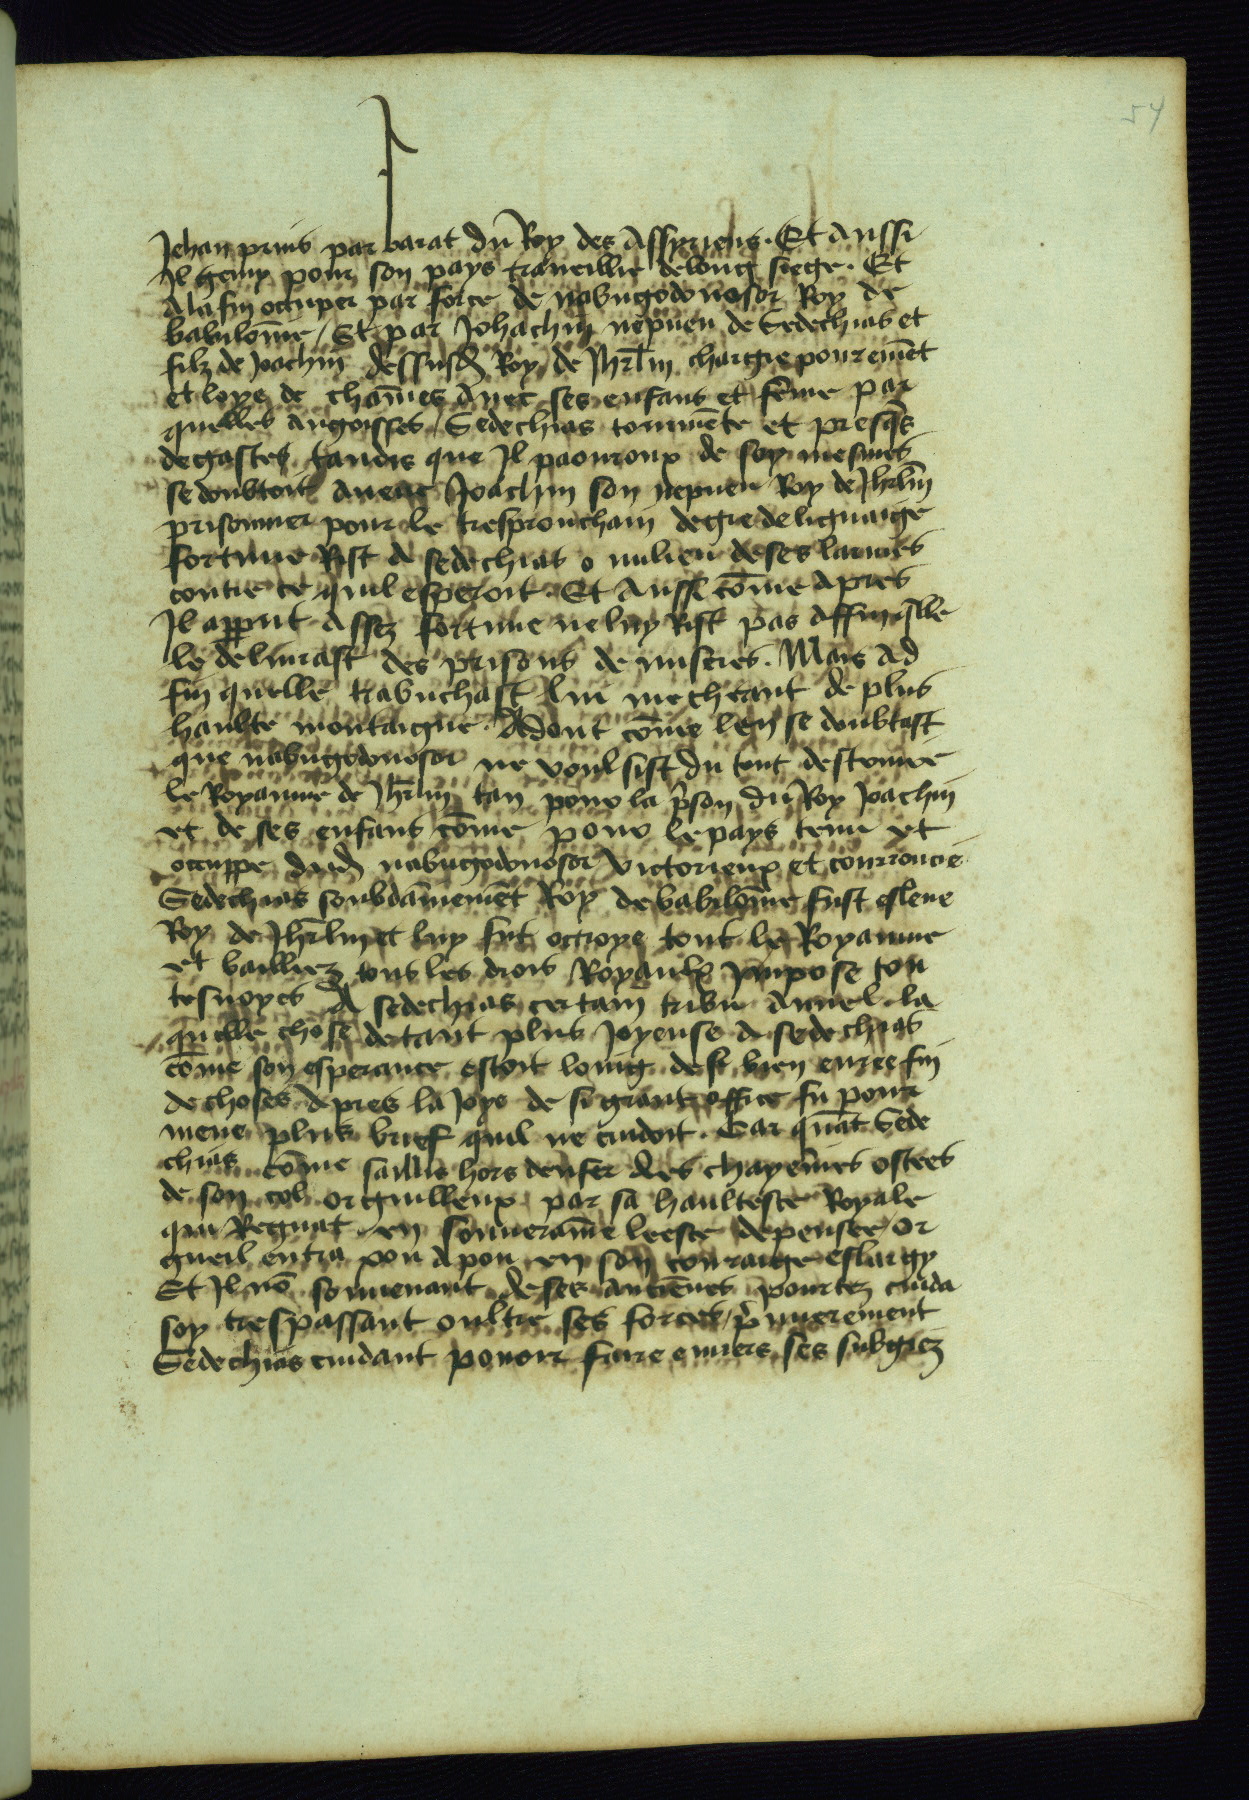 54
Jehan prins par barat du Roy des Assyriens. Et Aussi
Il gemy pour son pays traueillie de long siege. Et
Ala fin occuper par force de nabugodonosor Roy de
babilōnie / Et par Johachin nepueu de Sedechias et
filz de Joachin dessusd Roy de Jhrlm chargie pouremēt
et loye de chaīnes Auec ses enfans et fēme par
quelles Angoisses Sedechias tourmēte et presqs
degastes tandis que Il paouroux de soy mesmes
se doubtoit Auecuc Joachin son nepueu Roy de Jhrlm
prisonnier pour le tresprouchain degre de lignaige
fortune Rist A sedechias o milieu de ses larmes
contre ce quil esperoit. Et Aussi cōme Apres
Il apput Assez fortune ne luy Rist pas Affin qlle
le deliurast des prisons de miseres. Mais Ad
fin quelle trabuchast lui mecheant de plus
haulte montaigne. Adont cōme len se doubtast
que nabugodonosor ne voulsist du tout destruire
le Royaume de Jhrlm tan pour la pson du Roy Joachin
et de ses enfans cōme pour le pays tenu et
occuppe dud nabugodonosor victorieux et courroucie
Sedechias soubdāinemēt Roy de babilōnie fust esleue
Roy de Jhrlm et luy fut octroye tout le Royaume
et bailliez tous les drois Royaulx Impose tou
tesuoyes A sedechias certain tribu Annel la
quelle chose de tant plus Joyeuse A sedechias
cōme son esperance estoit loing de si bien euree fin
de choses Apres la Joye de si grant office fu pour
mene plus brief quil ne cuidoit. Car quāt Sede
chias cōme saillis hors denfer des chayēnes ostees
de son col orguilleux par sa haultesce Royale
qui Regnat en souueraīne leesce de pensee / or
gueil entra pou A pou en son couraige eslargy
Et Il nō souuenant de ses anciēnes pourtez cuida
soy trespassant oultre ses forces / pmierement
Sedechias cuidant pouoir faire enuers ses subgiez